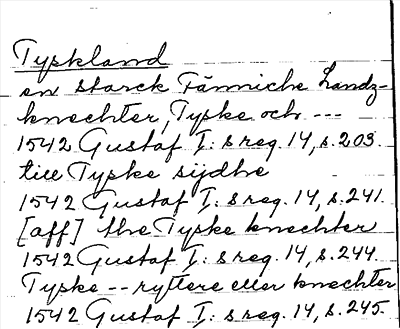 Tyskland
en starck Fänniche Landz-
knechter, Tyske och ---
1542 Gustaf I: s reg. 14, s. 203.
till Tyske sijdhe
1542 Gustaf I: s reg. 14, s. 241.
[aff] the Tyske knechter
1542 Gustaf I: s reg. 14, s. 244.
Tyske -- ryttere eller knechter
1542 Gustaf I: s reg. 14, s. 245.